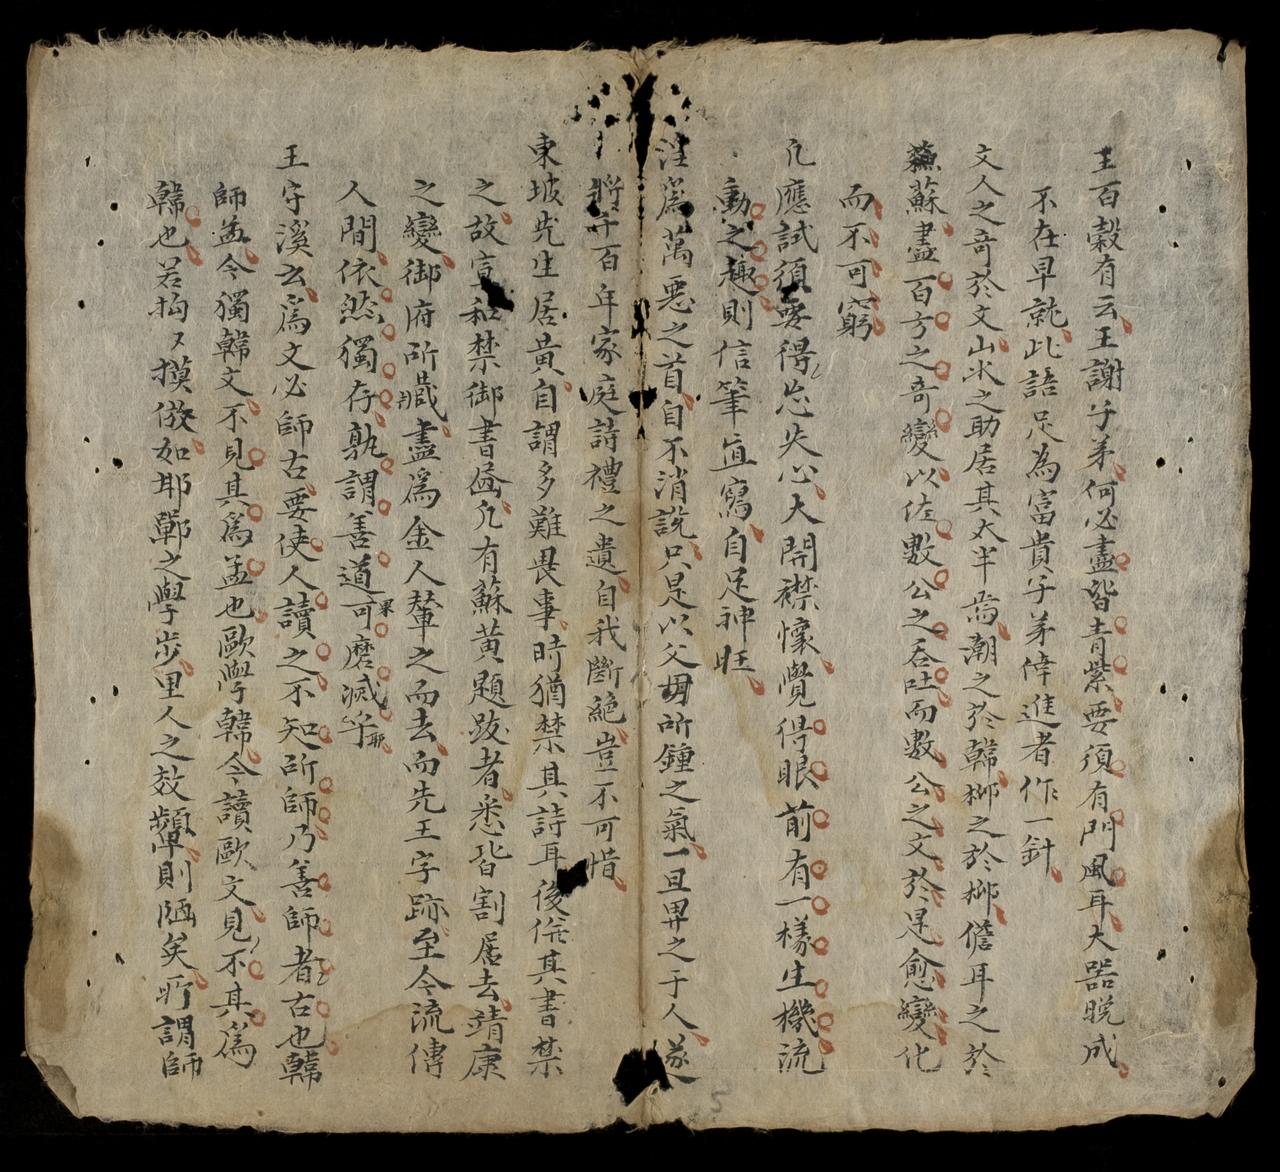 王百穀有云王謝子弟何必盡皆青紫要須有門風耳大器脱成
不在早就此語足為富貴子弟倖進者作一針
文人之奇於文山水之助居其太半焉潮之於韓柳之於柳儋耳之於
蘇盡百方之奇變以佐數公之吞吐而數公之文於是愈變化
而不可窮
凡應試須要得忘失心大開襟懷覺得眼前有一樣生機流
動之趣則信筆直寫自足神旺
為萬惡之首自不消説只是以父母所鍾之氣一旦畀之于人遂
將千百年家庭詩禮之遺自我斷絶豈不可惜
東坡先生居黄自謂多難畏事時猶禁其詩耳後併其書禁
之故宣和禁御書畫凡有蘇黄題跋者悉皆割居去靖康
之變御府所藏盡為金人輦之而去而先王字跡至今流傳
人間依然獨存孰謂善道可磨滅乎
王守溪云為文必師古要使人讀之不知所師乃善師者古也韓
師孟今獨韓文不見其為孟也歐學韓今讀歐文見不其為
韓也若拘々摸倣如耶鄲之學步里人之效顰則陋矣所謂師